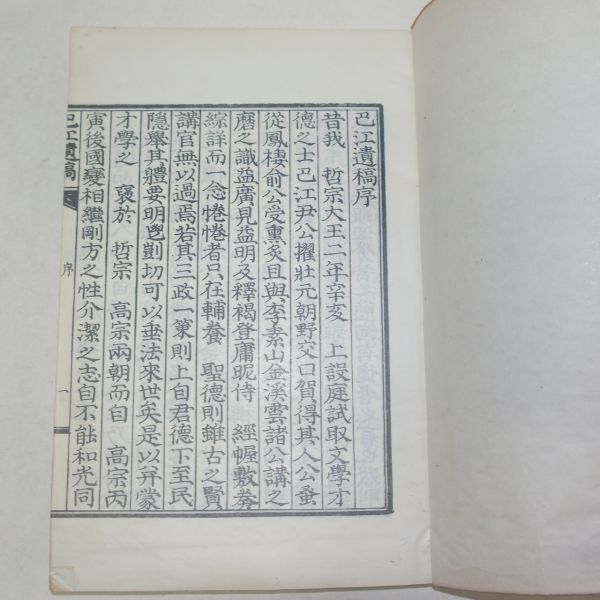 巴江遺稿序
昔我 哲宗大王二年辛亥 上設庭試取文學才
德之士巴江尹公擢壯元朝野交口賀得其人公蚤
從鳳棲俞公受熏炙且與李素山金溪雲諸公講之
磨之識益廣見益明及釋褐登庸昵侍 經幄敷奏
綜詳而一念惓惓者只在輔養 聖德則雖古之賢
講官無以過焉若其三政一策則上自君德下至民
隱舉其體要明鬯剴切可以垂法來世矣是以幷蒙
才學之 褒於 哲宗 高宗兩朝而自 高宗丙
寅後國變相繼剛方之性介潔之志自不能和光同
巴江遺稿
序
一